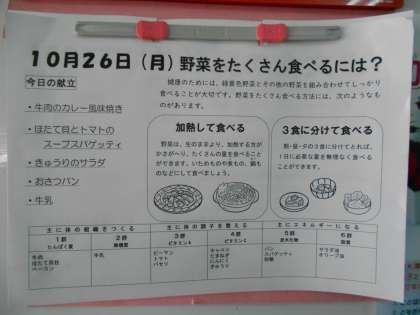 10月26日(月)野菜をたくさん食べるには?
今日の献立
・牛肉のカレー風味焼き
・ほたて貝とトマトの
スープスパゲッティ
・きゅうりのサラダ
・おさつパン
・牛乳
健康のためには、緑黄色野菜とその他の野菜を組み合わせてしっかり
食べることが大切です。野菜をたくさん食べる方法には、次のようなも
のがあります。
加熱して食べる
野菜は、生のままより、加熱する方が
かさがへり、たくさんの量を食べることが
できます。いためものや煮もの、鍋も
のなどにして食べましょう。
3食に分けて食べる
朝・昼・夕の3食に分けてとれば、
1日に必要な量を無理なく食べる
ことができます。
主に体の組織をつくる
主に体の調子を整える
主にエネルギーになる
1群
2群
3群
4群
5群
6群
たんぱく質
無機質
ビタミンA
ビタミンC
炭水化物
脂質
牛肉
ほたて貝柱
ベーコン
牛乳
ピーマン
トマト
パセリ
キャベツ
たまねぎ
にんにく
きゅうり
パン
スパゲッティ
砂糖
サラダ油
オリーブ油